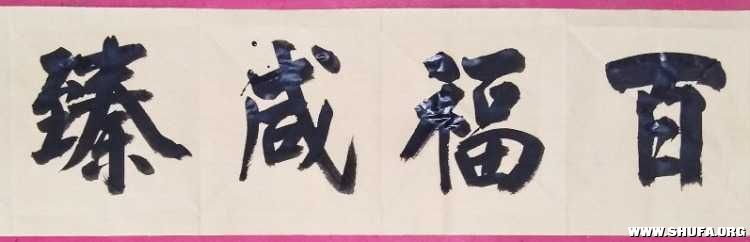 百福咸臻
WWW.SHUFA.ORG